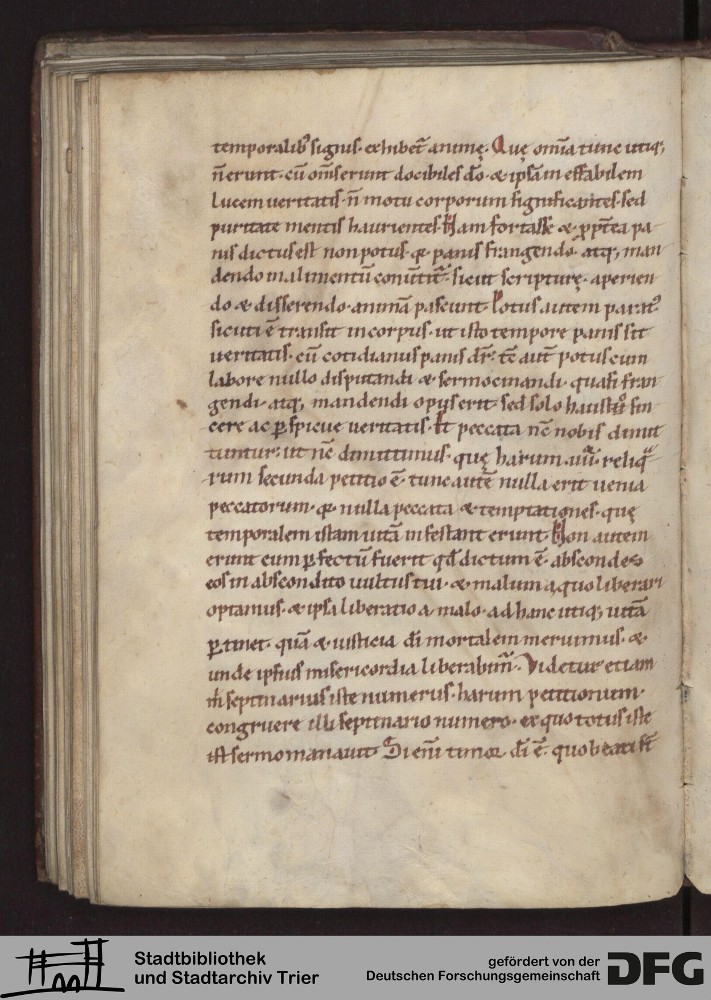 temporalib; signis· exhibet᷑ animę. Quę omīa tunc utiq;
n̄ erunt· cū om̄s erunt docibiles dō· & ipsā ineffabilem
lucem ueritatis· n̄ motu corporum significantes· sed
puritate mentis haurientes· Nam fortasse & ꝓpt̄ea pa
nis dictus est non potus· q̄ panis frangendo· atq; man
dendo in alimentū conuertit᷑· sicut scripturę· aperien
do & disserendo· animā pascunt· Potus autem parat᷑
sicuti ē transit in corpus· ut isto tempore panis sit
ueritatis· cū cotidianus panis dr̄· tc̄ aut̄ potus cum
labore nullo disputandi & sermocinandi· quasi fran
gendi· atq; mandendi opus erit· sed solo haustu sin
cere ac ꝑspicue ueritatis· Et peccata nc̄ nobis dimit
tuntur· ut nc̄ dimittimus· quę harum reliq̄
rum secunda petitio ē· tunc autē nulla erit uenia
peccatorum· q̄ nulla peccata & temptationes· quę
temporalem istam uitā infestant erunt· Non autem
erunt cum ꝑfectū fuerit qd̄ dictum ē· abscondes
eos in abscondito uultus tui· & malum a quo liberari
optamus· & ipsa liberatio a malo· ad hanc utiq; uitā
ꝑtinet· quā & iusticia dī mortalem meruimus· &
unde ipsius misericordia liberabim᷑· Videtur etiam
m̄ septinarius iste numerus· harum petitiorum·
congruere illi septinario numero· ex quo totus iste
iste sermo manauit· Si enī timor dī ē· quo beati st̄
Stadtbibliothek
und Stadtarchiv Trier
gefördert von der
Deutschen Forschungsgemeinschaft
DFG